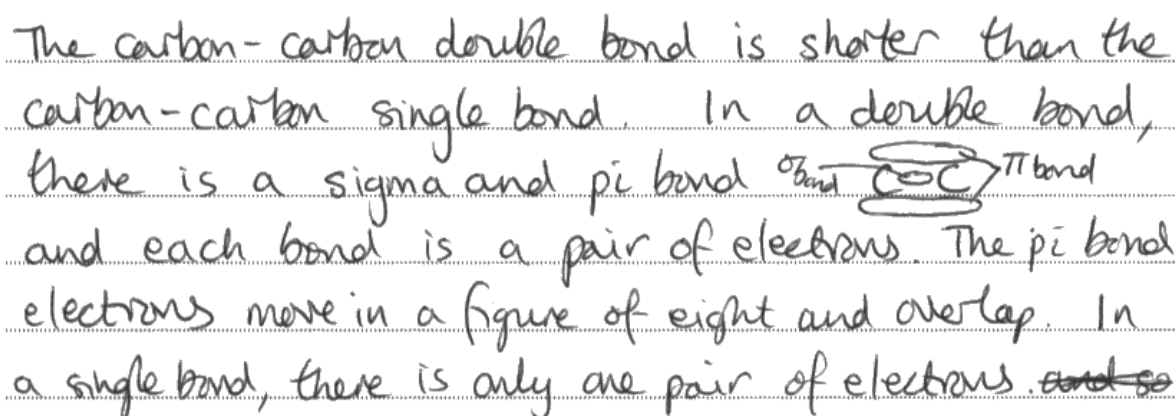 The carbon-carbon double bond is shorter than the
carbon-carbon single bond. In a double bond,
there is a sigma and pi bond σ bond C C π bond
and each bond is a pair of electrons. The pi bond
electrons move in a figure of eight and overlap. In
a single bond, there is only one pair of electrons. and so